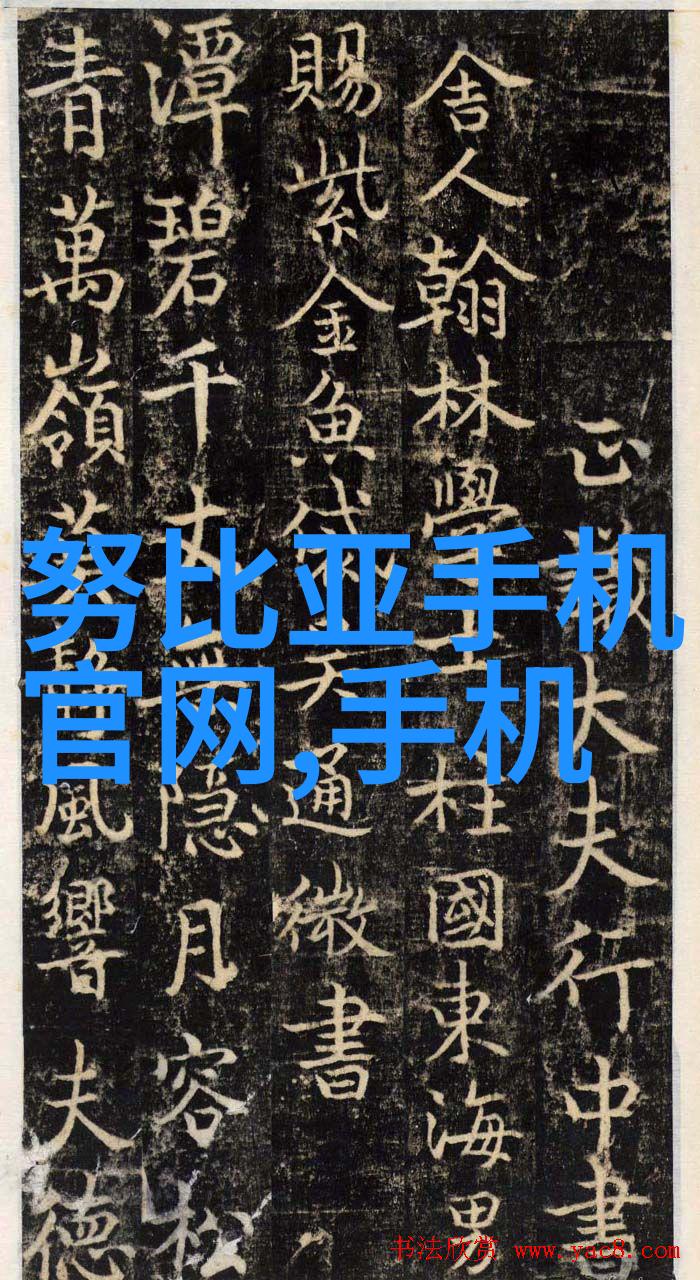 正議大夫行中書
舍人翰林學士柱國東海男
賜紫金魚袋吳通微書
潭碧千丈無隱月容松
青萬嶺風響夫德
努比亚手机
官网,手机
书法欣赏 www.yac8.com